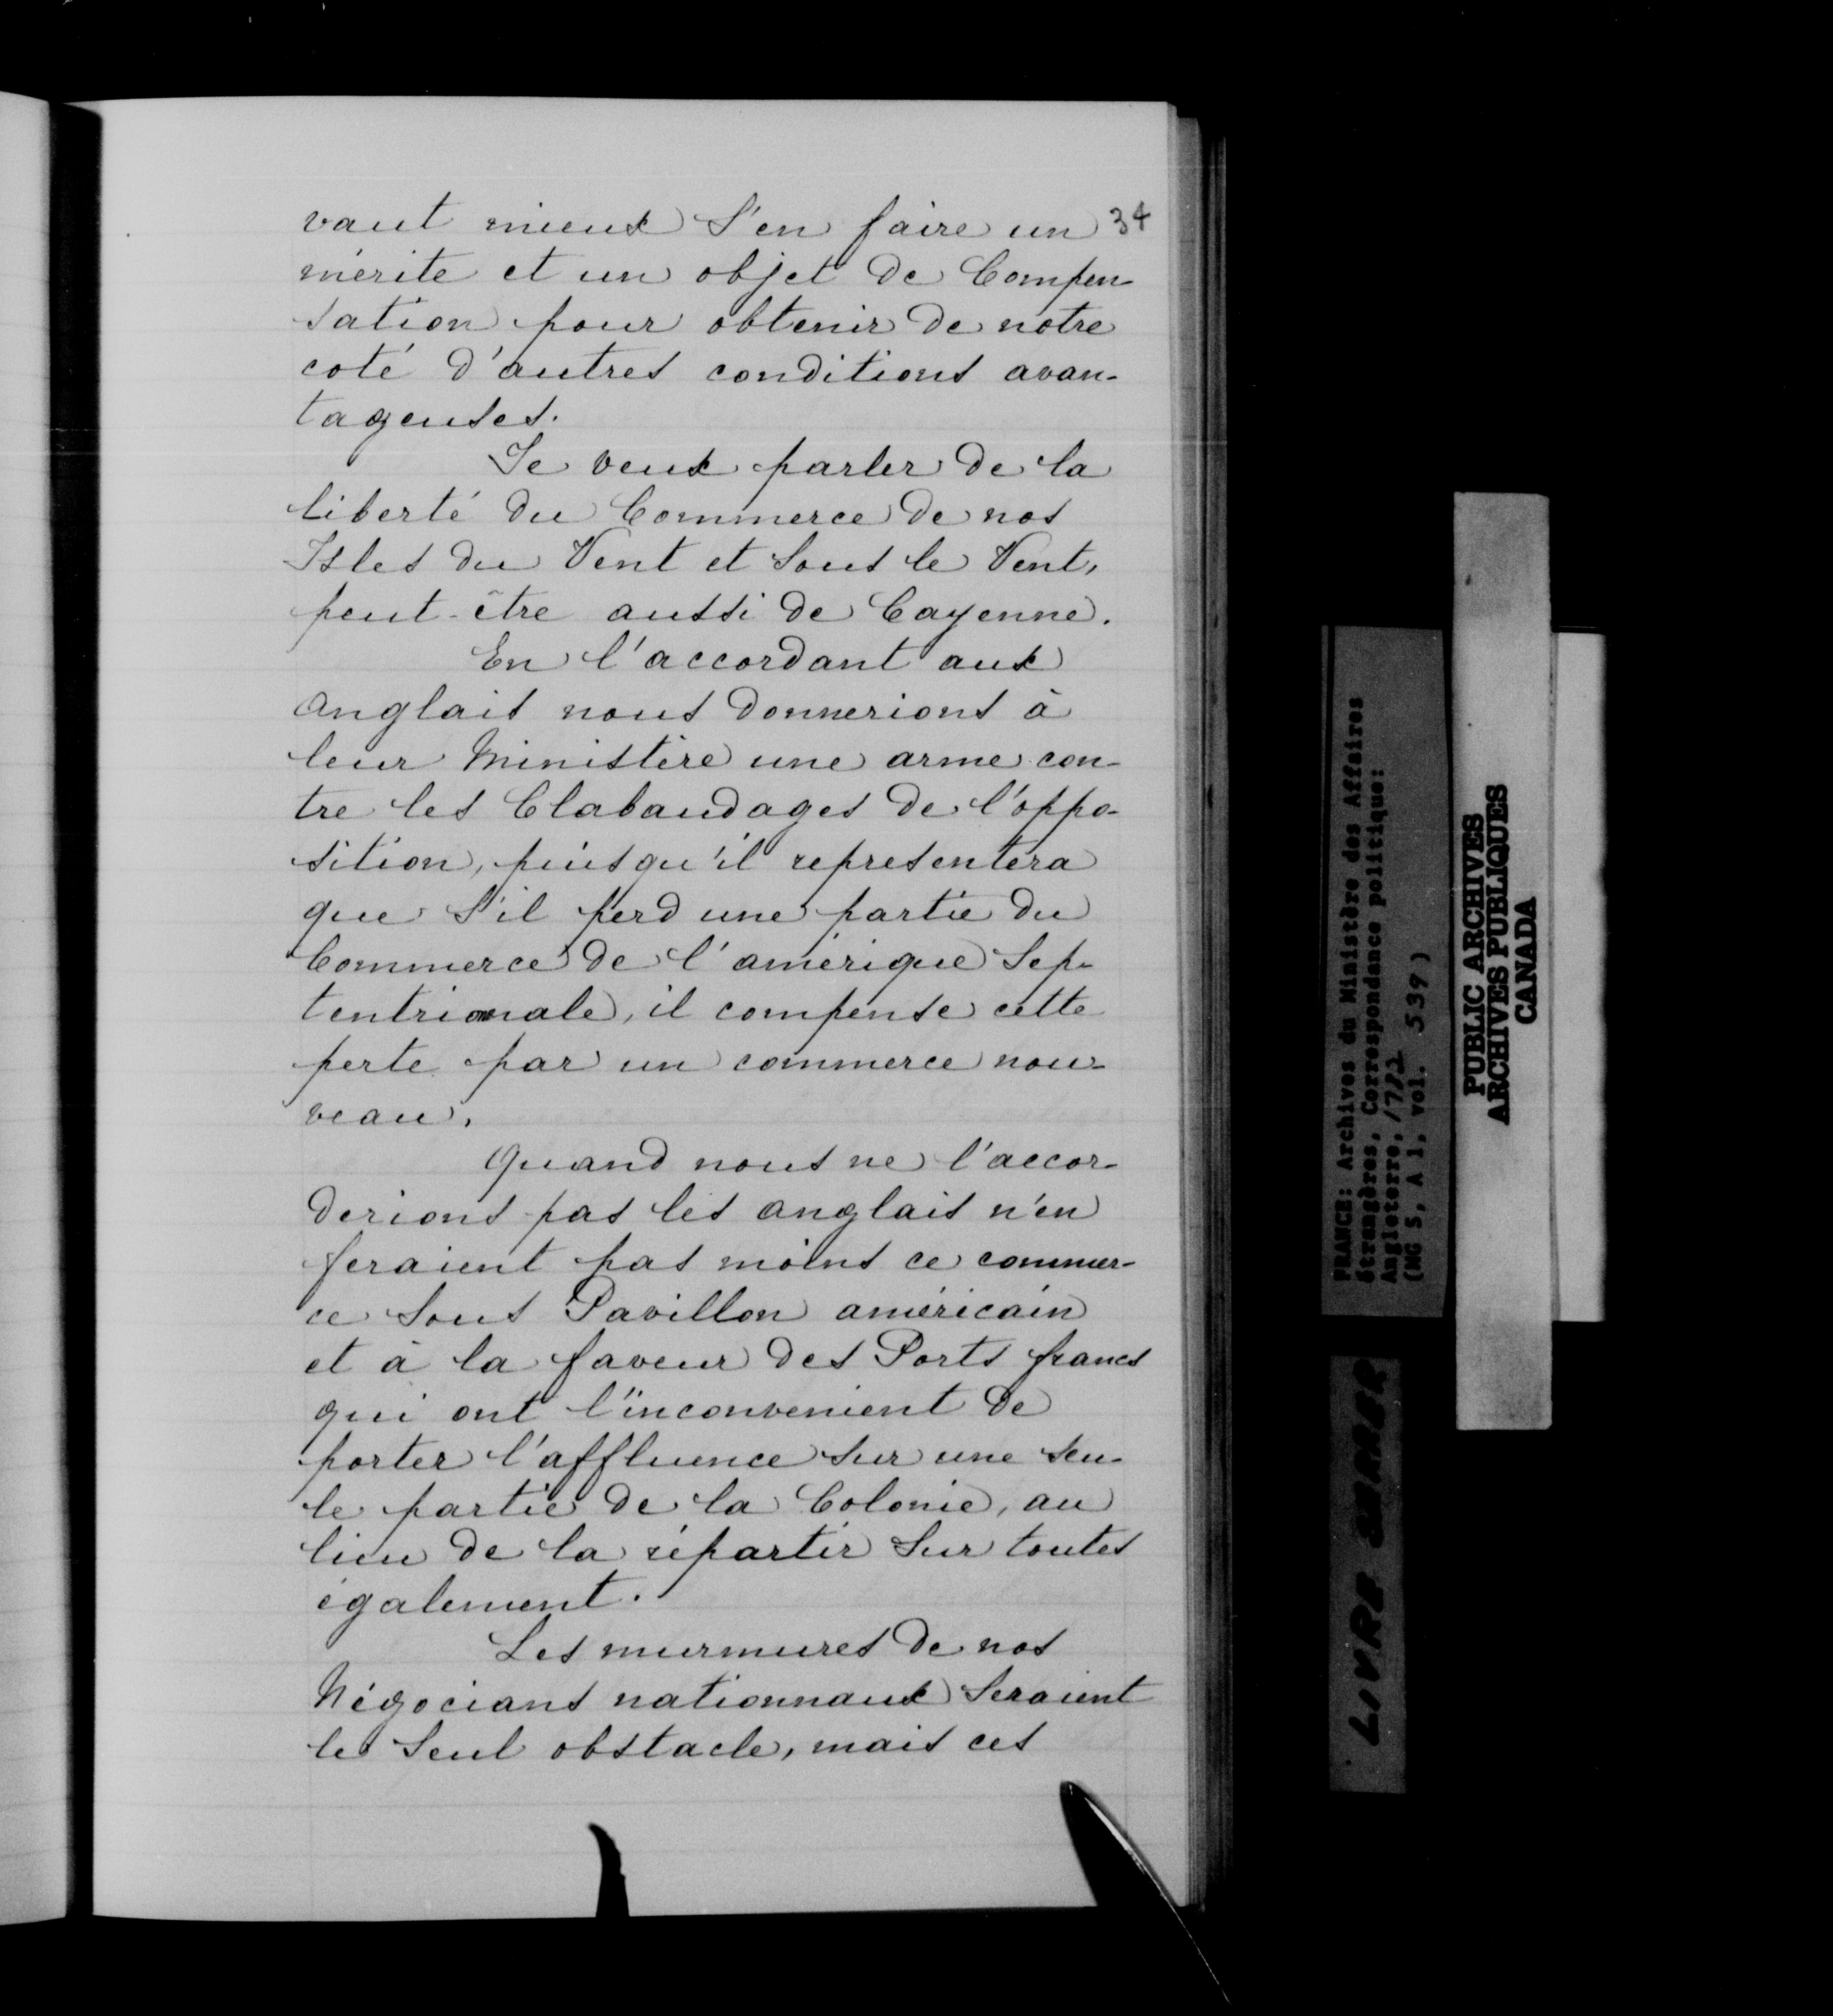 34
vaut mieux S'en faire un
mérite et un objet de Compen-
sation pour obtenir de notre
coté d'autres conditions avan-
tageuses.
Je veux parler de la
liberté du Commerce de nos
Isles du Vent et Sous le Vent,
peut-être aussi de Cayenne.
En l'accordant aux
anglais nous donnerions à
leur Ministère une arme con-
tre les Clabaudages de l'oppo-
sition, puisqu'il representera
que S'il perd une partie du
Commerce de l'amérique Sep-
tentrionale, il compense cette
perte par un commerce nou-
veau.
Quand nous ne l'accor-
derions pas les anglais n'en
feraient pas moins ce commer-
ce Sous Pavillon américain
et à la faveur des Ports francs
qui ont l'inconvenient de
porter l'affluence sur une seu-
le partie de la Colonie, au
lieu de la répartir Sur toutes
également.
Les murmures de nos
Négocians nationnaux Seraient
le Seul obstacle, mais ces
FRANCE: Archives du Ministère des Affaires
étrangères, Correspondance politique:
Angleterre,
(MG 5, A 1, vol. 539)
PUBLIC ARCHIVES
ARCHIVES PUBLIQUES
CANADA
LIVRE